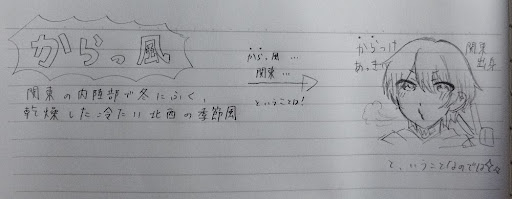 からっ風
関東の内陸部で冬にふく、
乾燥した冷たい北西の季節風
から、風 …
関東 …
ということは!
からつけ
あっきー
関東
出身
と、いうことなのでは